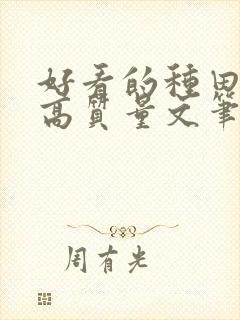 好看的種田
高質量文筆
周有光